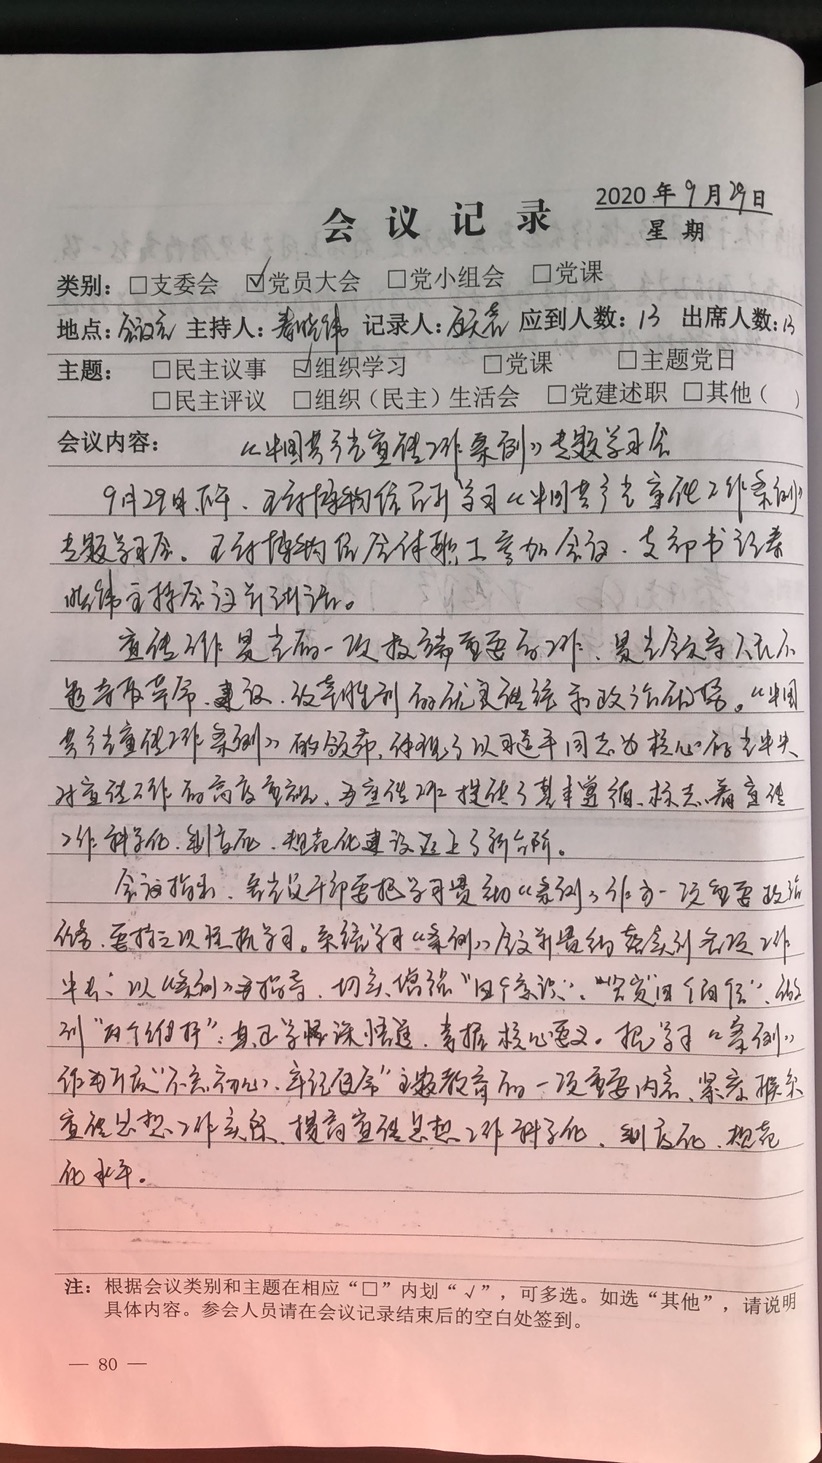 会 议 记 录
2020 年 9 月 29 日
星 期
类别：□支委会 ☑党员大会 □党小组会 □党课
地点：会议室 主持人：晓纬 记录人： 应到人数：13 出席人数：13
主题： □民主议事 ☑组织学习 □党课 □主题党日
□民主评议 □组织（民主）生活会 □党建述职 □其他（ ）
会议内容： 《中国共产党宣传工作条例》专题学习会
9月29日下午，王府博物馆召开学习《中国共产党宣传工作条例》
专题学习会。王府博物馆全体职工参加会议，支部书记
晓纬主持会议并讲话。
宣传工作是党的一项极端重要的工作，是党领导人民不
断夺取革命、建设、改革胜利的优良传统和政治优势。《中国
共产党宣传工作条例》的颁布，体现了以习近平同志为核心的党中央
对宣传工作的高度重视，为宣传工作提供了基本遵循，标志着宣传
工作科学化、制度化、规范化建设迈上了新台阶。
会议指出，各党员干部要把学习贯彻《条例》作为一项重要政治
任务，要持之以恒抓学习。系统学习《条例》全文并贯彻落实到各项工作
中去；以《条例》为指导，切实增强“四个意识”、坚定“四个自信”、做
到“两个维护”；真正学懂深悟透，掌握核心要义。把学习《条例》
作为开展“不忘初心、牢记使命”主题教育的一项重要内容，紧密联系
宣传思想工作实际，提高宣传思想工作科学化、制度化、规范
化水平。
注：根据会议类别和主题在相应“□”内划“√”，可多选。如选“其他”，请说明
具体内容。参会人员请在会议记录结束后的空白处签到。
— 80 —